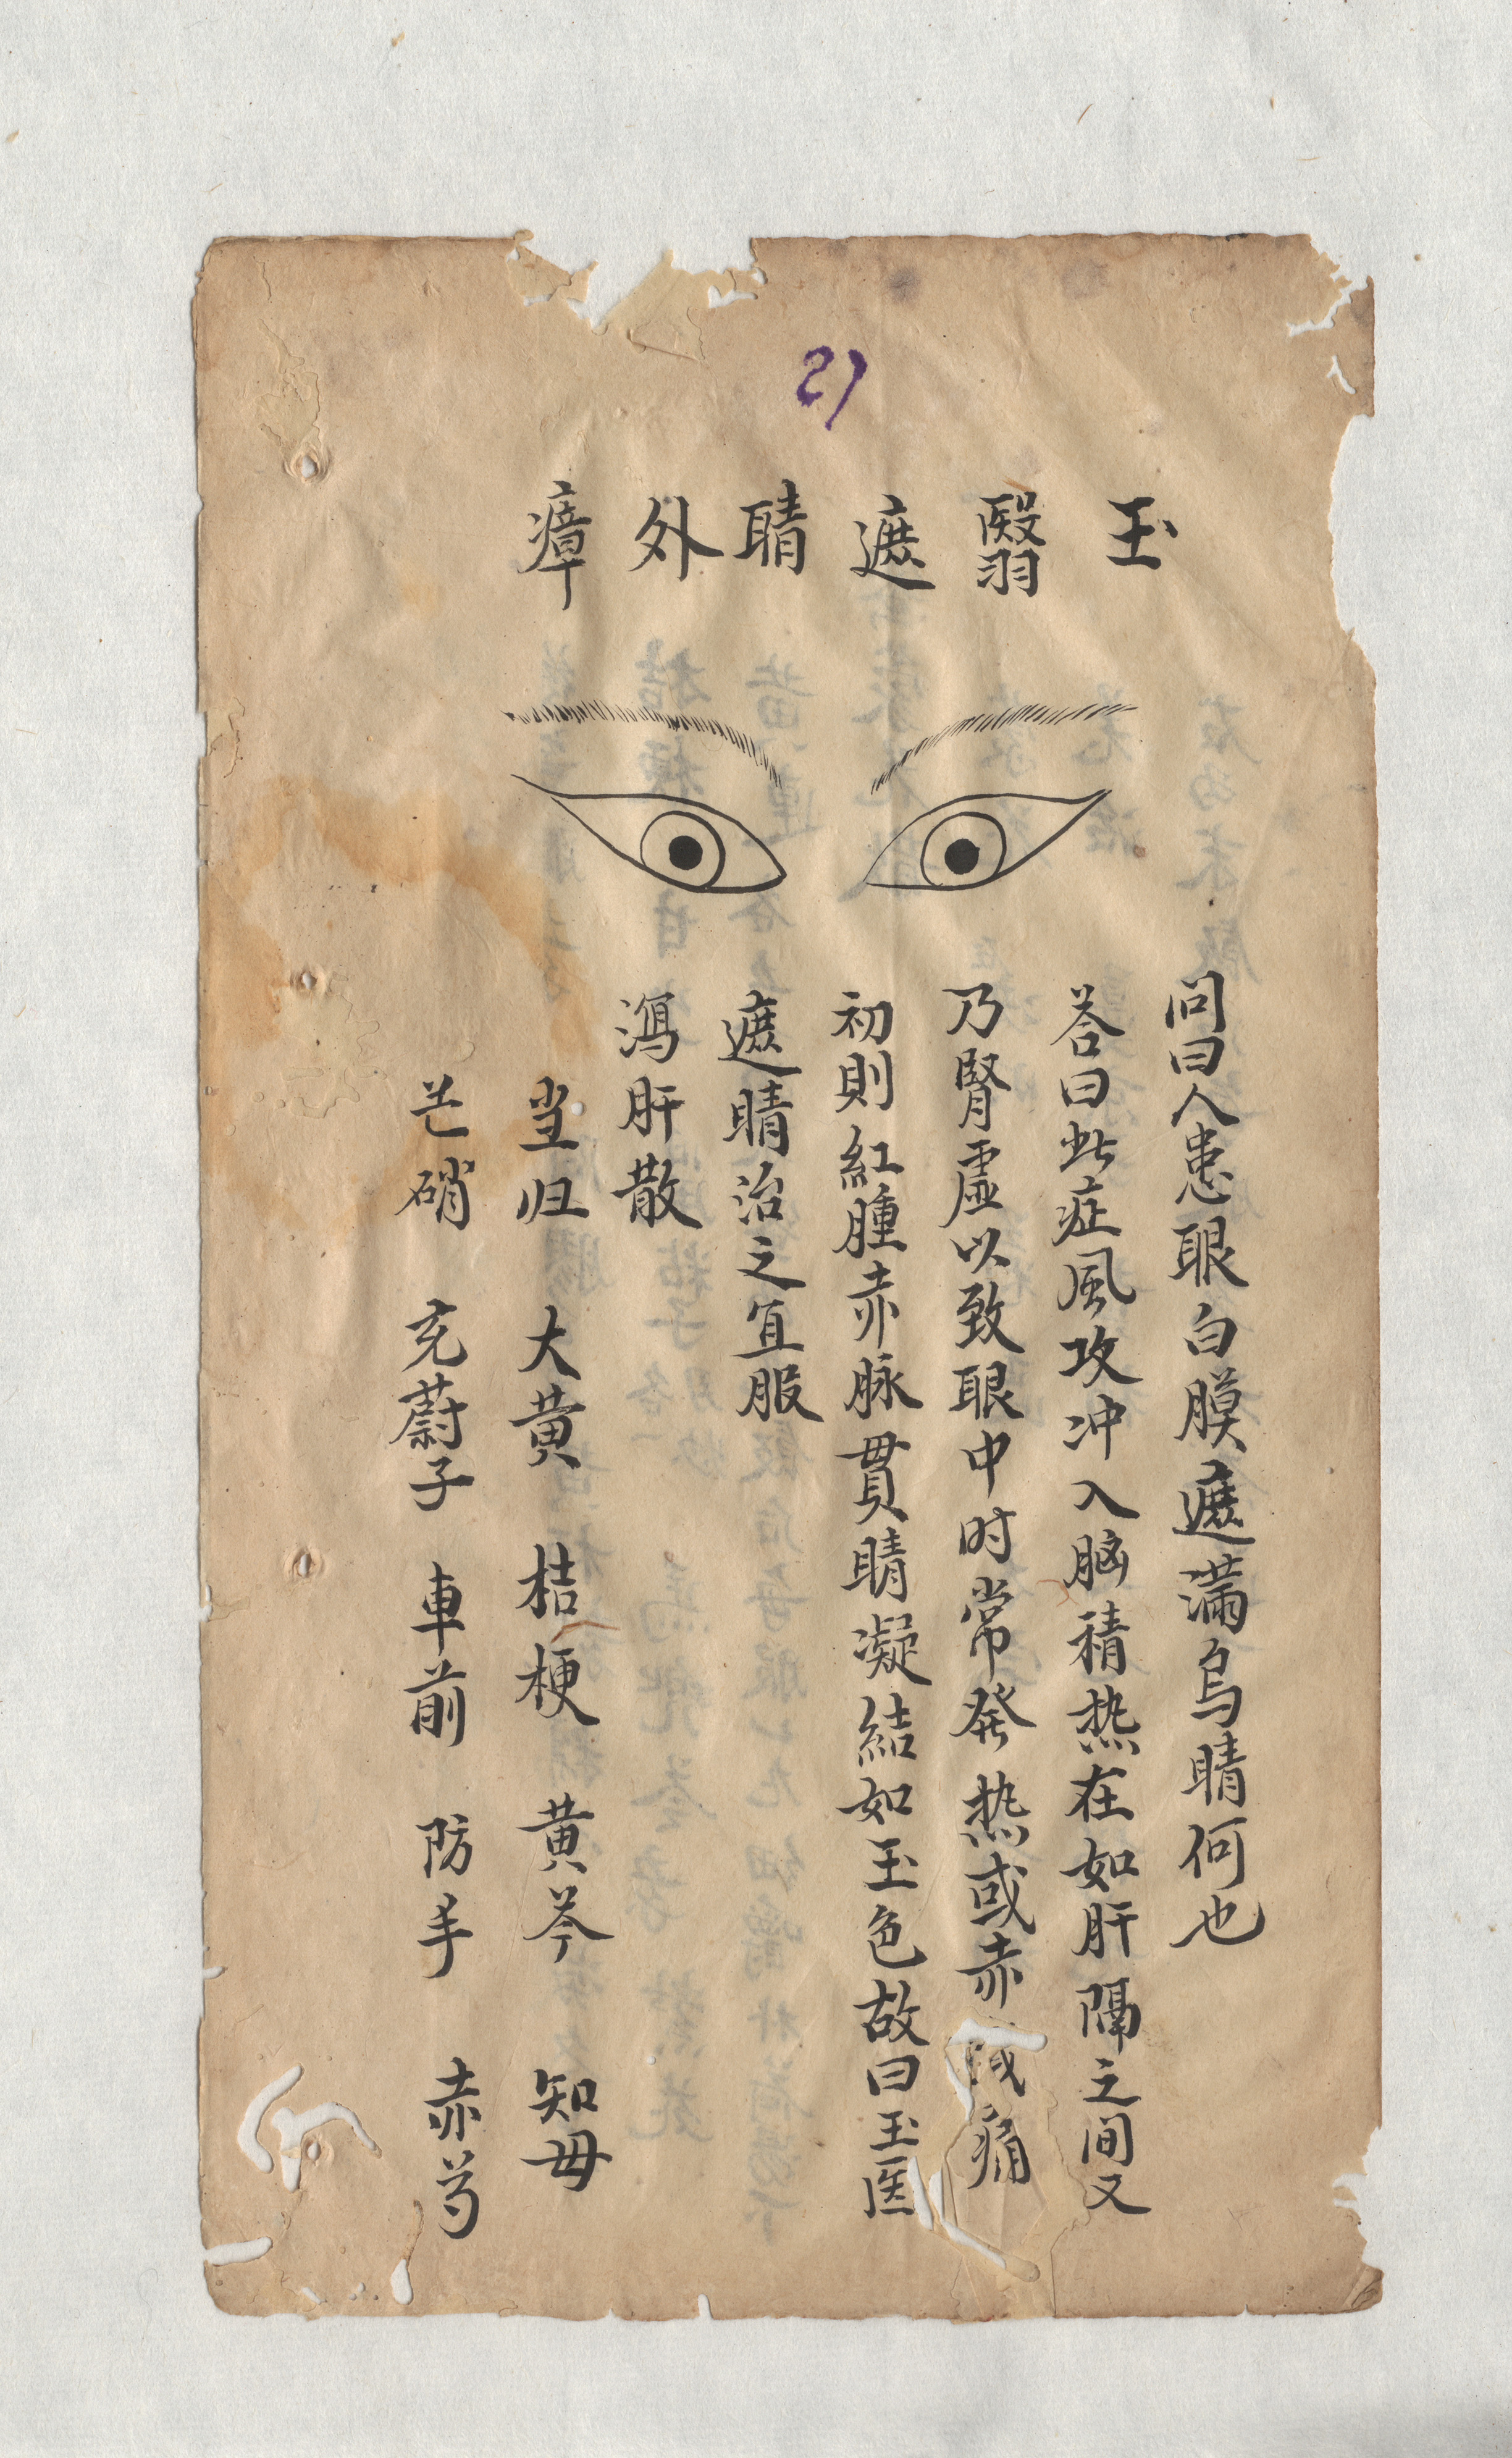 21
玉翳遮睛外瘴
问曰人患眼白膜遮满乌睛何也
答曰此症風攻冲入脑積热在如肝隔之间又
乃腎虛以致眼中时常發热或赤或痛
初則紅腫赤脉貫睛凝結如玉色故曰玉医
遮睛治之宜服
瀉肝散
当归 大黄 桔梗 黄芩 知母
芒硝 充蔚子 車前 防羊 赤芍